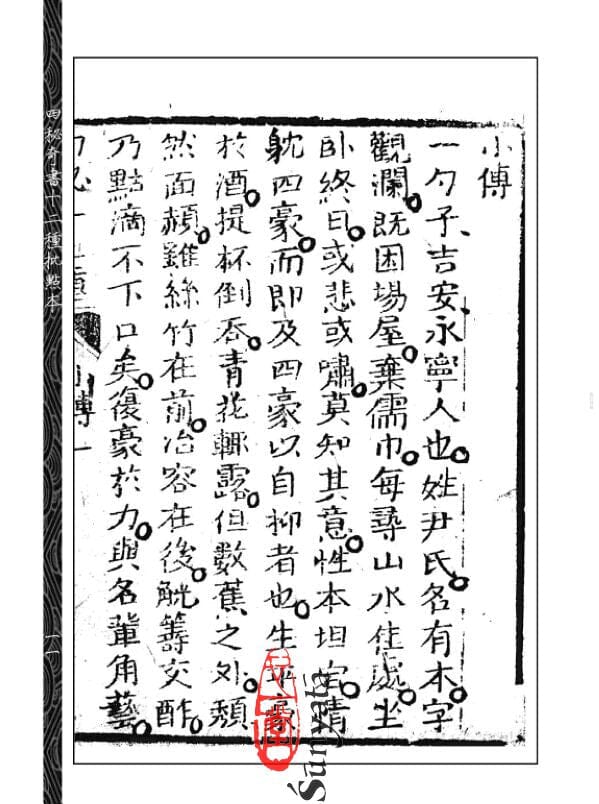 小傳
一勺子吉安永寧人也姓尹氏名有本字
觀瀾既困場屋棄儒巾每尋山水佳處坐
卧終日或悲或嘯莫知其意性本坦宕情
躭四豪而即及四豪以自抑者也生平豪
於酒提杯倒吞青花輒露但數蕉之外頹
然面赬雖絲竹在前冶容在後觥籌交酢
乃點滴不下口矣復豪於力與名輩角藝
傳一
四秘奇書十二種批點本
Śūnyatā